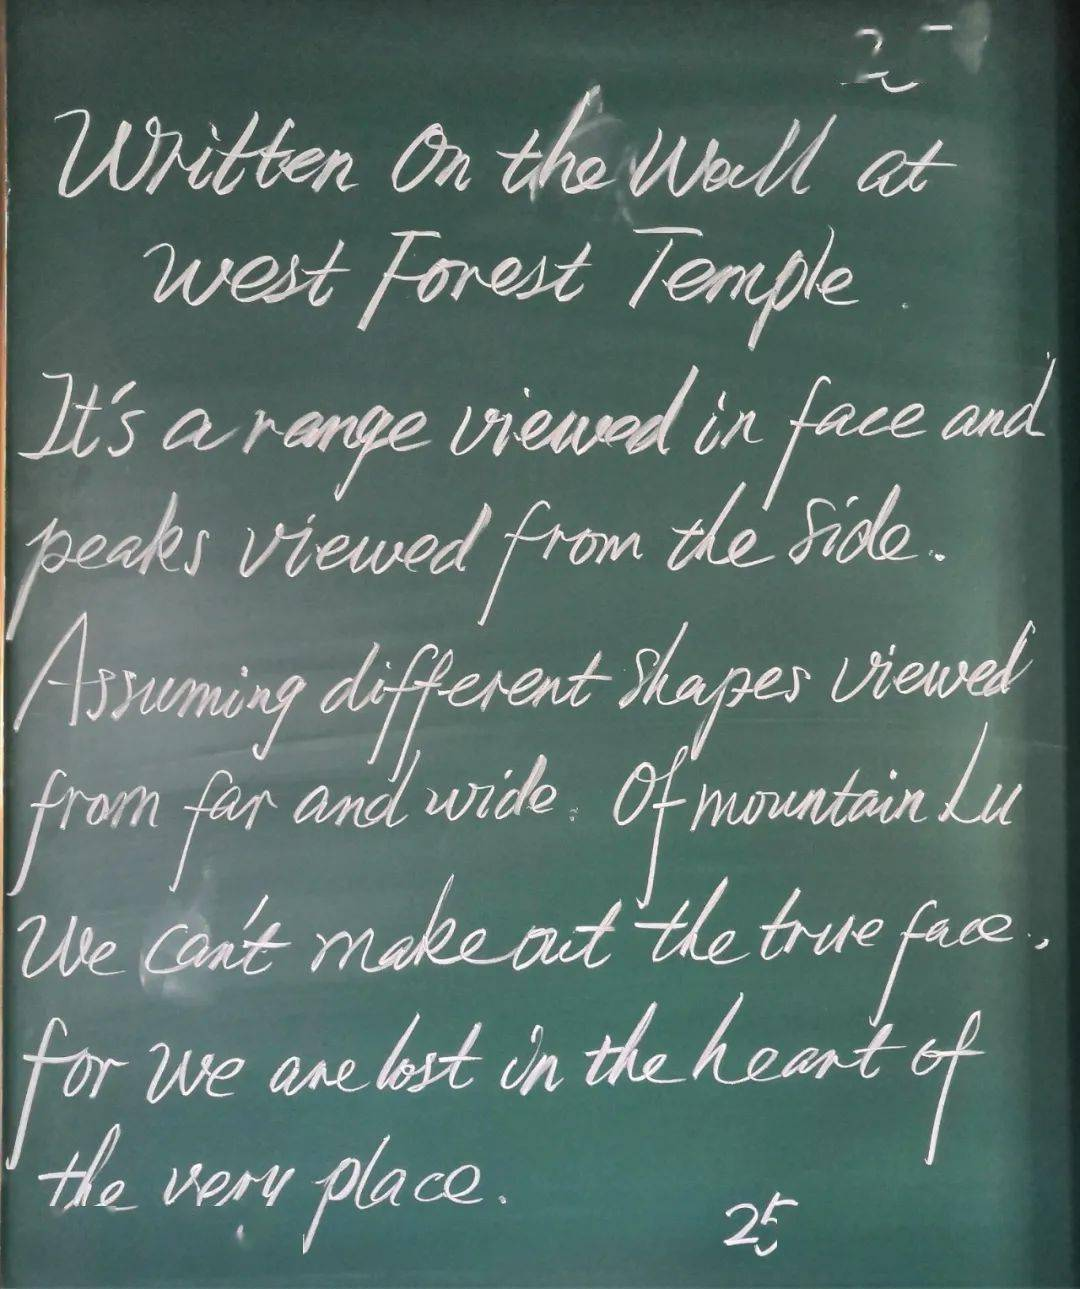 Written On the Wall at
West Forest Temple
It's a range viewed in face and
peaks viewed from the side.
Assuming different shapes viewed
from far and wide. Of mountain Lu
We can't make out the true face.,
for we are lost in the heart of
the very place.
25